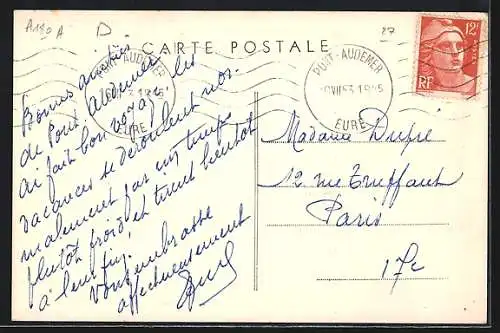 A180 A
D
27
CARTE POSTALE
PONT-AUDEMER
1945
EURE
PONT-AUDEMER
1945
EURE
12F
RF
Bonnes amitiés
de Pont Audemer les
ai fait bon voyage
vacances se déroulent nor-
malement par un temps
plutôt froid, et tirent bientôt
à leur fin.
Vous embrasse
affectueusement
Madame Dupré
12 rue Truffaut
Paris
17e